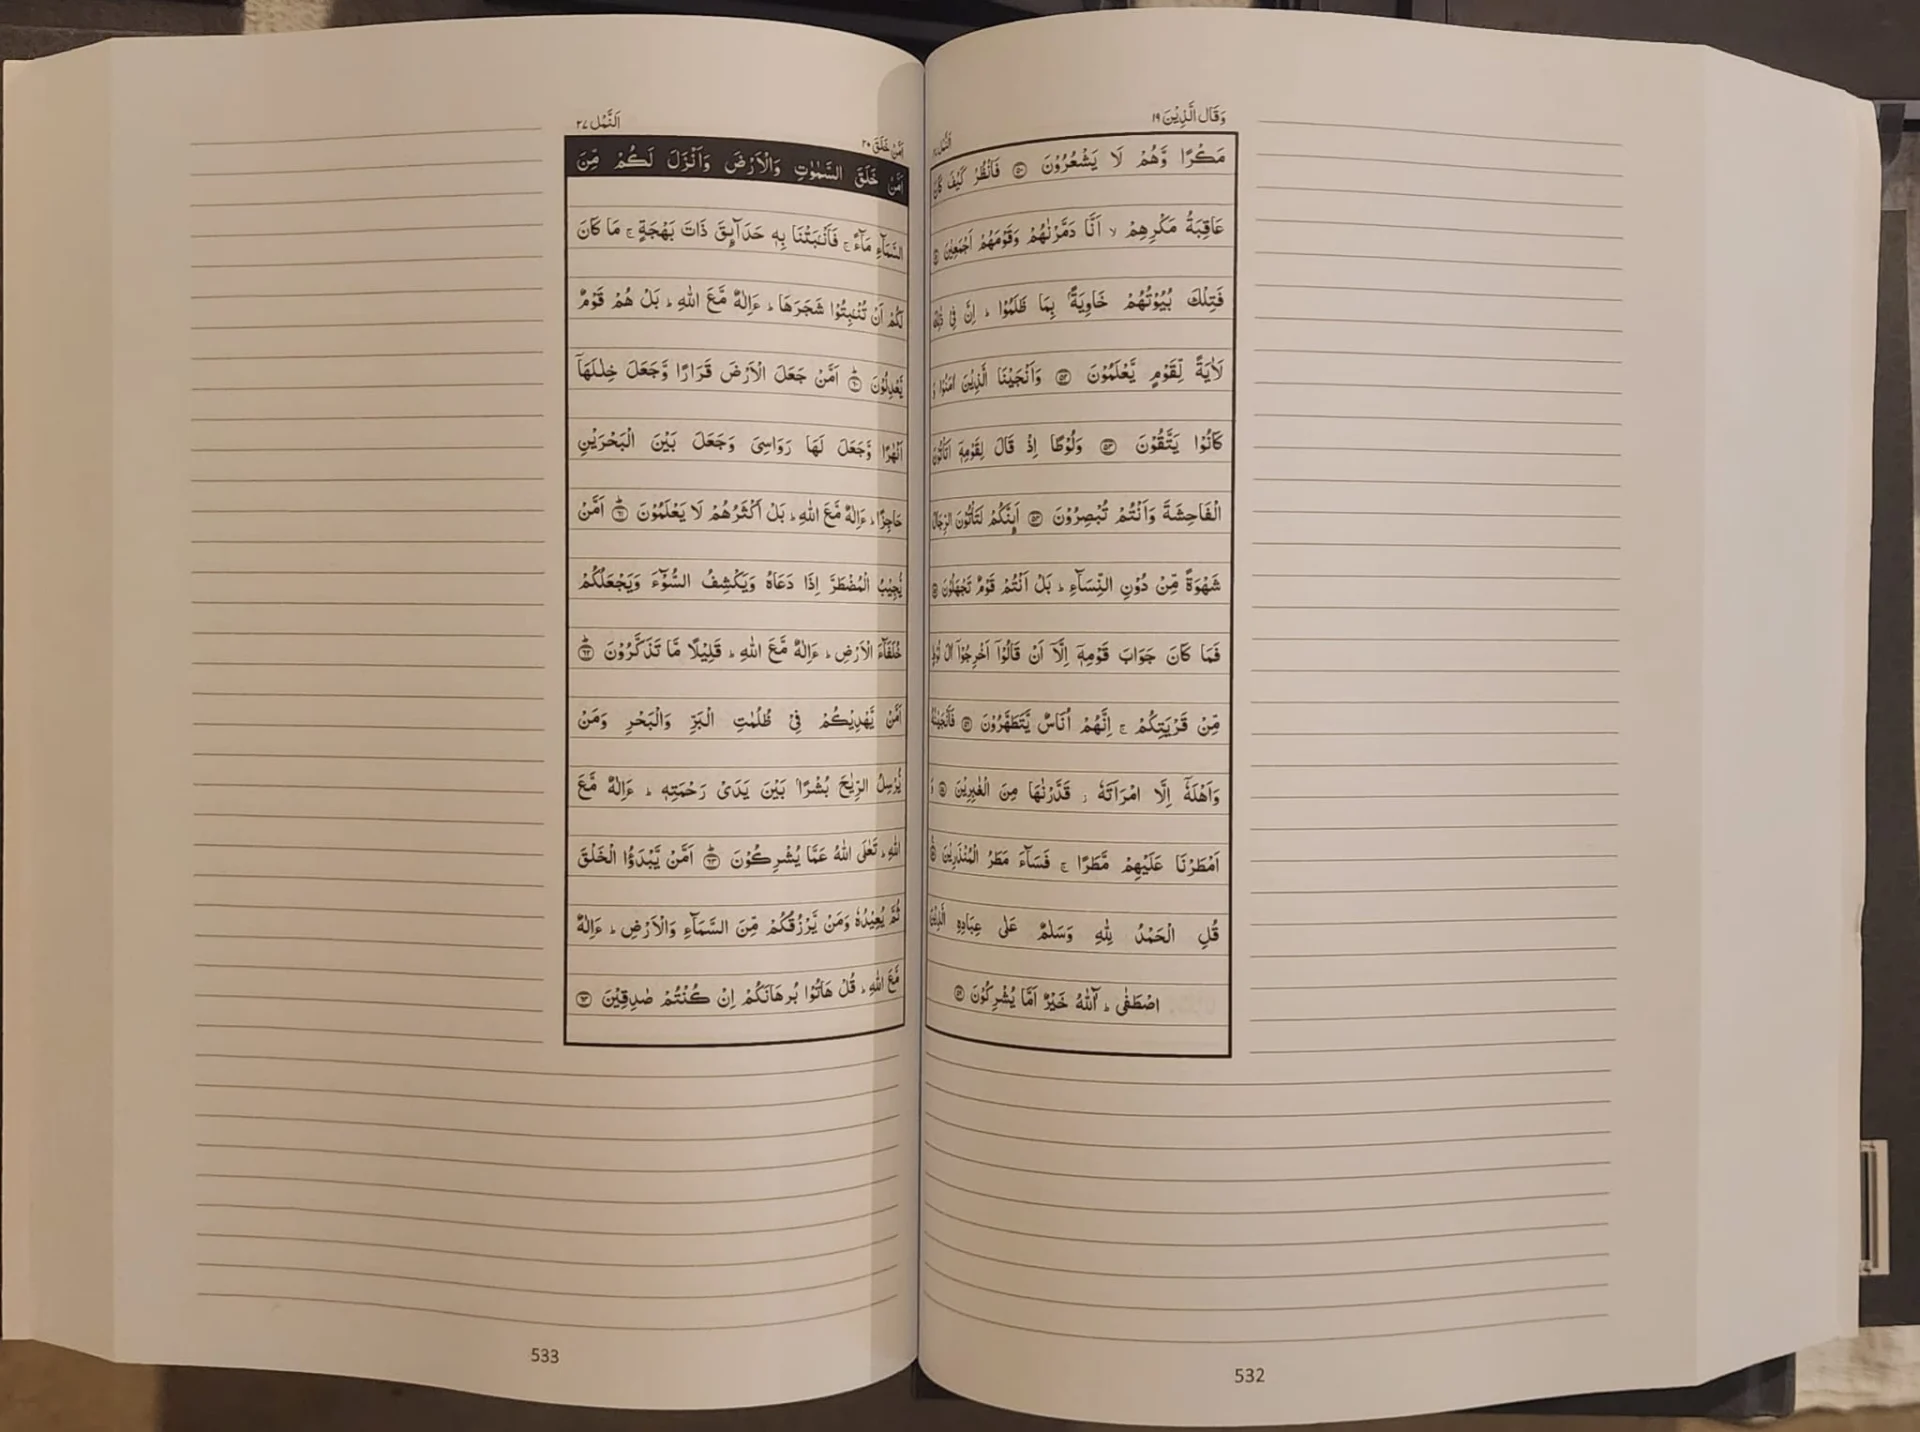 وَقَالَ الَّذِيْنَ ١٩
مَكْرًا وَّهُمْ لَا يَشْعُرُوْنَ ۝٥٠ فَانْظُرْ كَيْفَ كَانَ
عَاقِبَةُ مَكْرِهِمْ ۙ اَنَّا دَمَّرْنٰهُمْ وَقَوْمَهُمْ اَجْمَعِيْنَ
فَتِلْكَ بُيُوْتُهُمْ خَاوِيَةًۢ بِمَا ظَلَمُوْا ؕ اِنَّ فِيْ ذٰلِكَ
لَاٰيَةً لِّقَوْمٍ يَّعْلَمُوْنَ ۝٥٢ وَاَنْجَيْنَا الَّذِيْنَ اٰمَنُوْا وَ
كَانُوْا يَتَّقُوْنَ ۝٥٣ وَلُوْطًا اِذْ قَالَ لِقَوْمِهٖۤ اَتَاْتُوْنَ
الْفَاحِشَةَ وَاَنْتُمْ تُبْصِرُوْنَ ۝٥٤ اَىِٕنَّكُمْ لَتَاْتُوْنَ الرِّجَالَ
شَهْوَةً مِّنْ دُوْنِ النِّسَآءِ ؕ بَلْ اَنْتُمْ قَوْمٌ تَجْهَلُوْنَ
فَمَا كَانَ جَوَابَ قَوْمِهٖۤ اِلَّاۤ اَنْ قَالُوْۤا اَخْرِجُوْۤا اٰلَ لُوْطٍ
مِّنْ قَرْيَتِكُمْ ۚ اِنَّهُمْ اُنَاسٌ يَّتَطَهَّرُوْنَ ۝٥٦ فَاَنْجَيْنٰهُ
وَاَهْلَهٗۤ اِلَّا امْرَاَتَهٗ ؗ قَدَّرْنٰهَا مِنَ الْغٰبِرِيْنَ ۝٥٧ وَ
اَمْطَرْنَا عَلَيْهِمْ مَّطَرًا ۚ فَسَآءَ مَطَرُ الْمُنْذَرِيْنَ
قُلِ الْحَمْدُ لِلّٰهِ وَسَلٰمٌ عَلٰى عِبَادِهِ الَّذِيْنَ
اصْطَفٰى ؕ آٰللّٰهُ خَيْرٌ اَمَّا يُشْرِكُوْنَ ۝٥٩
532
اَمَّنْ خَلَقَ ٢٠
اَلنَّمْل ٢٧
اَمَّنْ خَلَقَ السَّمٰوٰتِ وَالْاَرْضَ وَاَنْزَلَ لَكُمْ مِّنَ
السَّمَآءِ مَآءً ۚ فَاَنْۢبَتْنَا بِهٖ حَدَآىِٕقَ ذَاتَ بَهْجَةٍ ۚ مَا كَانَ
لَكُمْ اَنْ تُنْۢبِتُوْا شَجَرَهَا ؕ ءَاِلٰهٌ مَّعَ اللّٰهِ ؕ بَلْ هُمْ قَوْمٌ
يَّعْدِلُوْنَ ۝٦٠ اَمَّنْ جَعَلَ الْاَرْضَ قَرَارًا وَّجَعَلَ خِلٰلَهَاۤ
اَنْهٰرًا وَّجَعَلَ لَهَا رَوَاسِيَ وَجَعَلَ بَيْنَ الْبَحْرَيْنِ
حَاجِزًا ؕ ءَاِلٰهٌ مَّعَ اللّٰهِ ؕ بَلْ اَكْثَرُهُمْ لَا يَعْلَمُوْنَ ۝٦١ اَمَّنْ
يُّجِيْبُ الْمُضْطَرَّ اِذَا دَعَاهُ وَيَكْشِفُ السُّوْٓءَ وَيَجْعَلُكُمْ
خُلَفَآءَ الْاَرْضِ ؕ ءَاِلٰهٌ مَّعَ اللّٰهِ ؕ قَلِيْلًا مَّا تَذَكَّرُوْنَ ۝٦٢
اَمَّنْ يَّهْدِيْكُمْ فِيْ ظُلُمٰتِ الْبَرِّ وَالْبَحْرِ وَمَنْ
يُّرْسِلُ الرِّيٰحَ بُشْرًۢا بَيْنَ يَدَيْ رَحْمَتِهٖ ؕ ءَاِلٰهٌ مَّعَ
اللّٰهِ ؕ تَعٰلَى اللّٰهُ عَمَّا يُشْرِكُوْنَ ۝٦٣ اَمَّنْ يَّبْدَؤُا الْخَلْقَ
ثُمَّ يُعِيْدُهٗ وَمَنْ يَّرْزُقُكُمْ مِّنَ السَّمَآءِ وَالْاَرْضِ ؕ ءَاِلٰهٌ
مَّعَ اللّٰهِ ؕ قُلْ هَاتُوْا بُرْهَانَكُمْ اِنْ كُنْتُمْ صٰدِقِيْنَ ۝٦٤
533